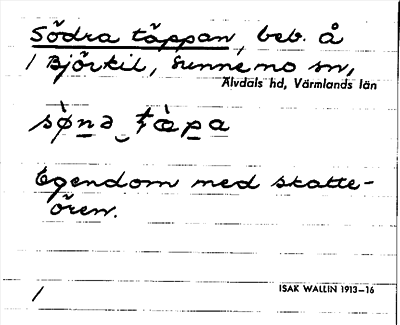 Södra täppan, beb. å
1 Björkil, Sunnemo sn,
Älvdals hd, Värmlands län
sø̀nə ‿ tæ̀pa
Egendom med skatte-
ören.
ISAK WALLIN 1913–16
1